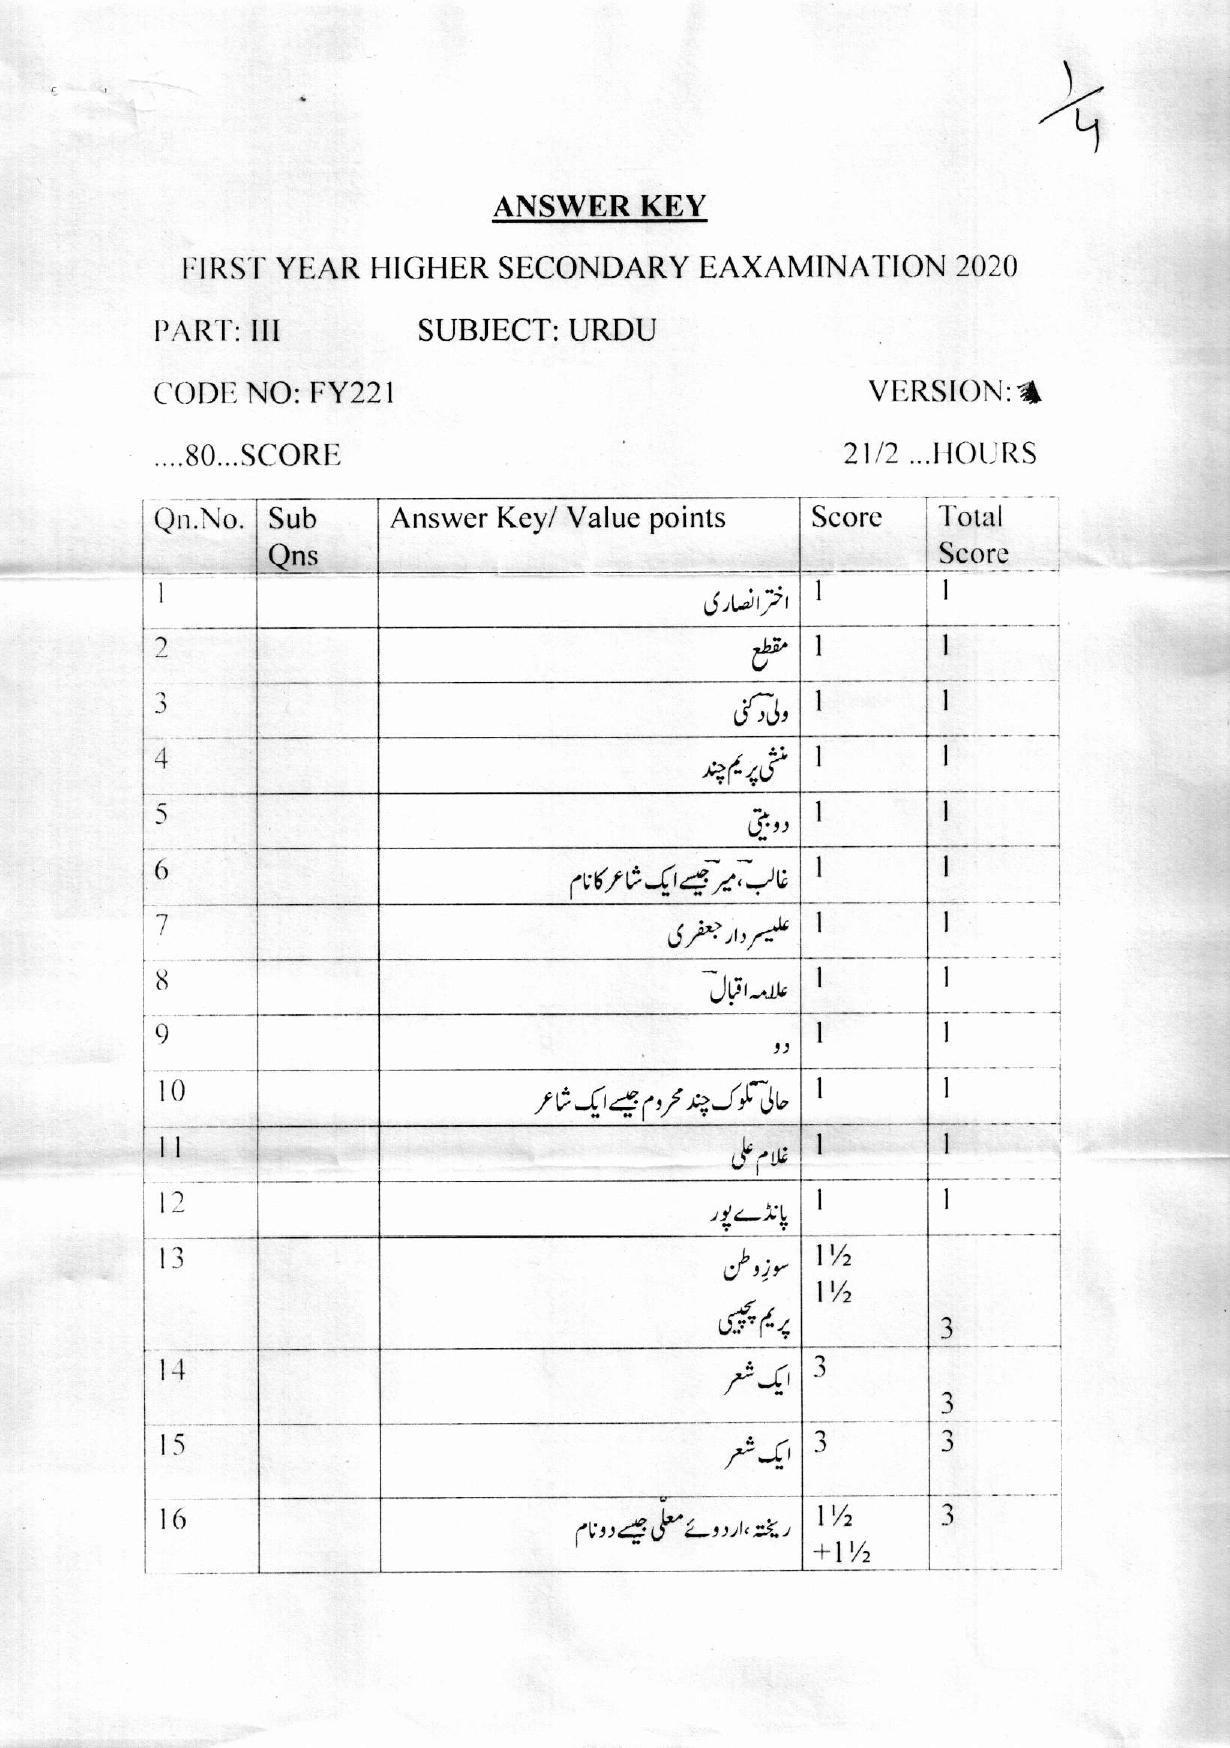 1/4
ANSWER KEY
FIRST YEAR HIGHER SECONDARY EAXAMINATION 2020
PART: III SUBJECT: URDU
CODE NO: FY221 VERSION:
....80...SCORE 21/2 ...HOURS
Qn.No. Sub Qns Answer Key/ Value points Score Total Score
1 اختر انصاری 1 1
2 مقطع 1 1
3 ولی دکنی 1 1
4 منشی پریم چند 1 1
5 دوبیتی 1 1
6 غالب، میر جیسے ایک شاعر کا نام 1 1
7 علی سردار جعفری 1 1
8 علامہ اقبال 1 1
9 دو 1 1
10 حالی تلوک چند محروم جیسے ایک شاعر 1 1
11 غلام علی 1 1
12 پانڈے پور 1 1
13 سوزِ وطن 1½
پریم پچیسی 1½ 3
14 ایک شعر 3 3
15 ایک شعر 3 3
16 ریختہ، اردوئے معلّٰی جیسے دو نام 1½ 3
+1½